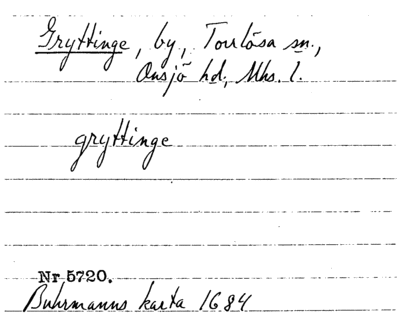 Gryttinge, by, Torrlösa sn.,
Onsjö hd, Mhs. l.
gryttinge
Nr 5720.
Buhrmanns karta 1684